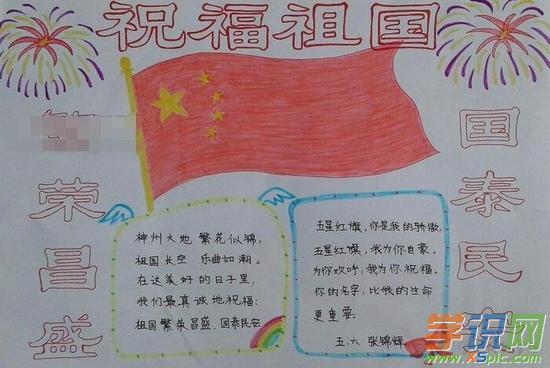 祝福祖国
荣昌盛
神州大地 繁花似锦,
祖国长空 乐曲如潮。
在这美好的日子里,
我们最真诚地祝福:
祖国繁荣昌盛,国泰民安
五星红旗,你是我的骄傲,
五星红旗,我为你自豪。
为你欢呼,我为你祝福。
你的名字,比我的生命
更重要。
五.六 张锦辉
国泰民
学识网
www.XSpic.com